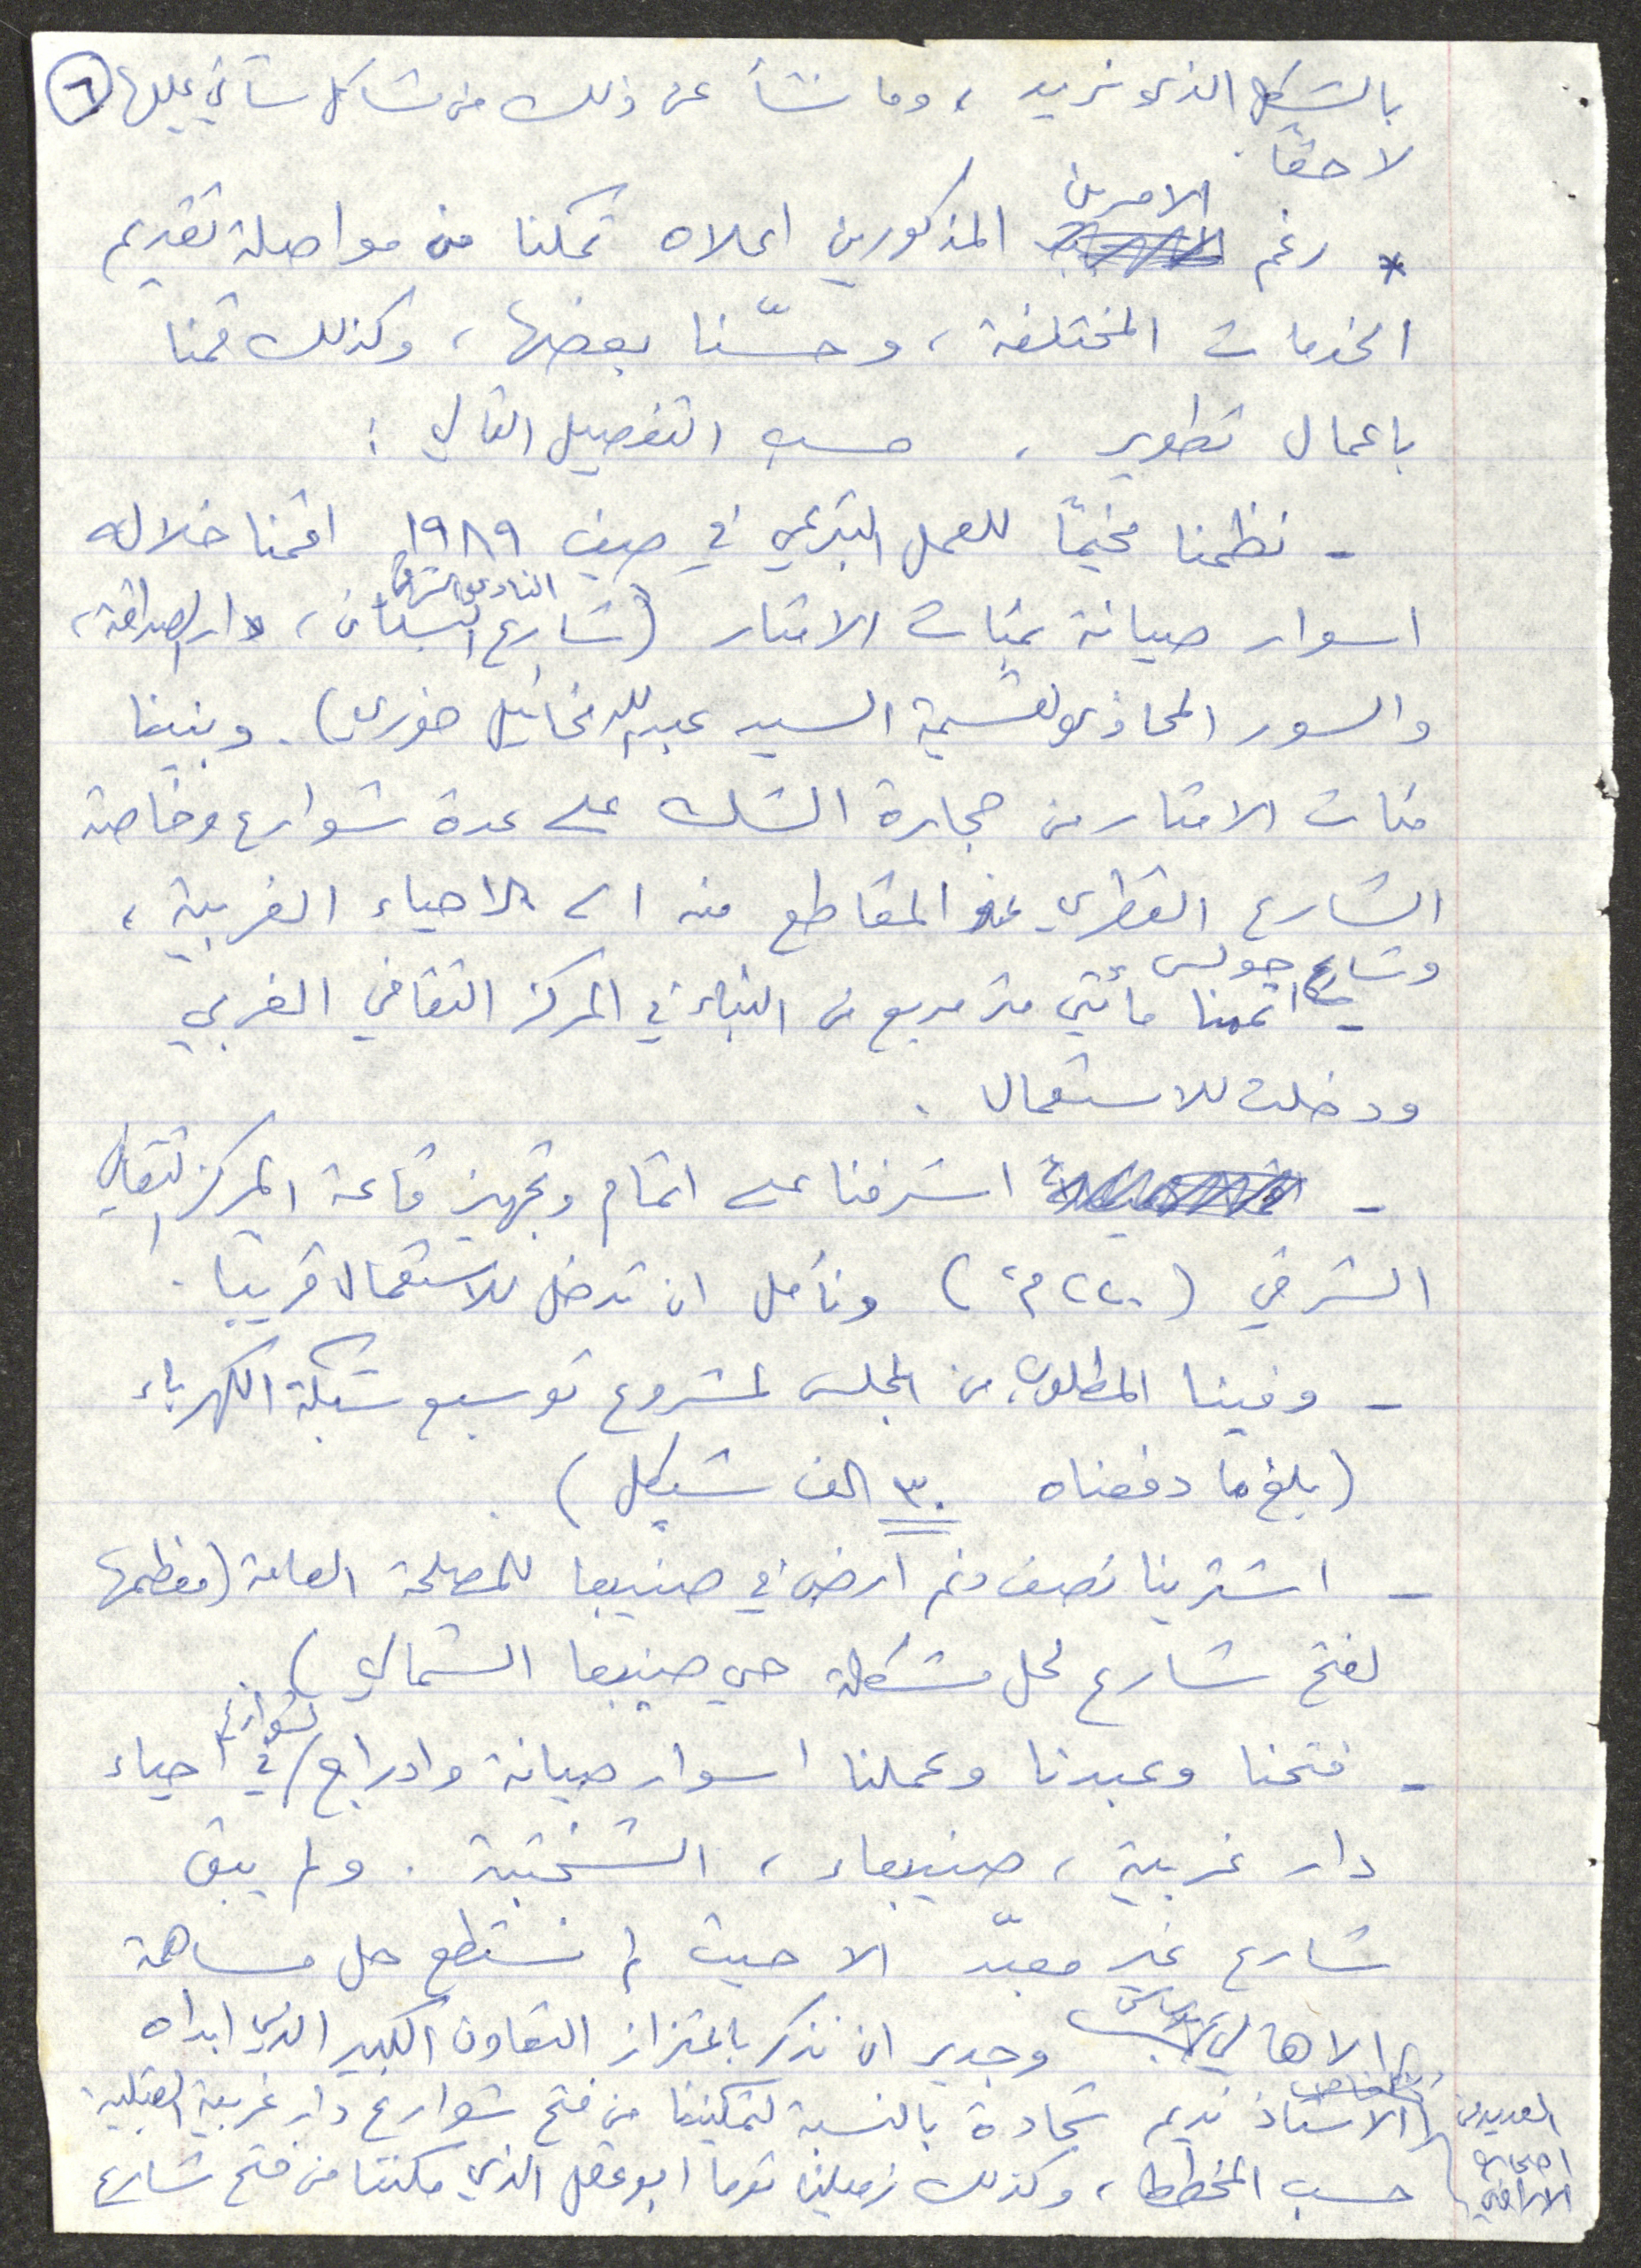 بالشكل الذي نريد ، وما نشأ عن ذلك من مشاكل سنأتي عليها ٦
لاحقاً .
الامرين
* رغم المذكورين اعلاه تمكنا من مواصلة تقديم
الخدمات المختلفة ، وحسّنا بعضها ، وكذلك قمنا
باعمال تطوير ، حسب التفصيل التالي :
- نظمنا مخيماً للعمل التبرعي في صيف ١٩٨٩ اقمنا خلاله
النادي
اسوار صيانة بمئات الامتار (شارع البستان ، دار الصداقة ،
والسور المحاذي لقسيمة السيد عبدالله مخائيل خوري) . وبنينا
مئات الامتار من حجارة الشك على عدة شوارع وخاصة
الشارع القطري عند المقاطع منه الى الاحياء الغربية ،
وشارع جولس
- اتممنا مأتي متر مربع من البناء في المركز الثقافي الغربي
ودخلت للاستعمال .
- اشرفنا على اتمام وتجهيز قاعة المركز الثقافي
الشرقي (٢٢٠ م٢) ونأمل ان تدخل للاستعمال قريبا .
- وفينا المطلوب من المجلس لمشروع توسيع شبكة الكهرباء
(بلغ ما دفعناه ٣٠ الف شيكل) .
- اشترينا نصف دنم ارض في صنيبعا للمصلحة العامة (معظمها
لفتح شارع لحل مشكلة حي صنيبعا الشمالي) .
شوارع
- فتحنا وعبدنا وعملنا اسوار صيانة وادراج في احياء
دار غربية ، صنيبعاء ، الشختبة . ولم يبق
شارع غير معبّد الا حيث لم نستطع حل مساهمة
الاهالي وجدير ان نذكر باعتزاز التعاون الكبير الذي ابداه
العديد من اصحاب الاراضي
الاستاذ نديم شحادة بالنسبة لتمكيننا من فتح شوارع دار غربية القبلية
حسب المخطط ، وكذلك زميلنا توما ابو عقل الذي مكننا من فتح شارع